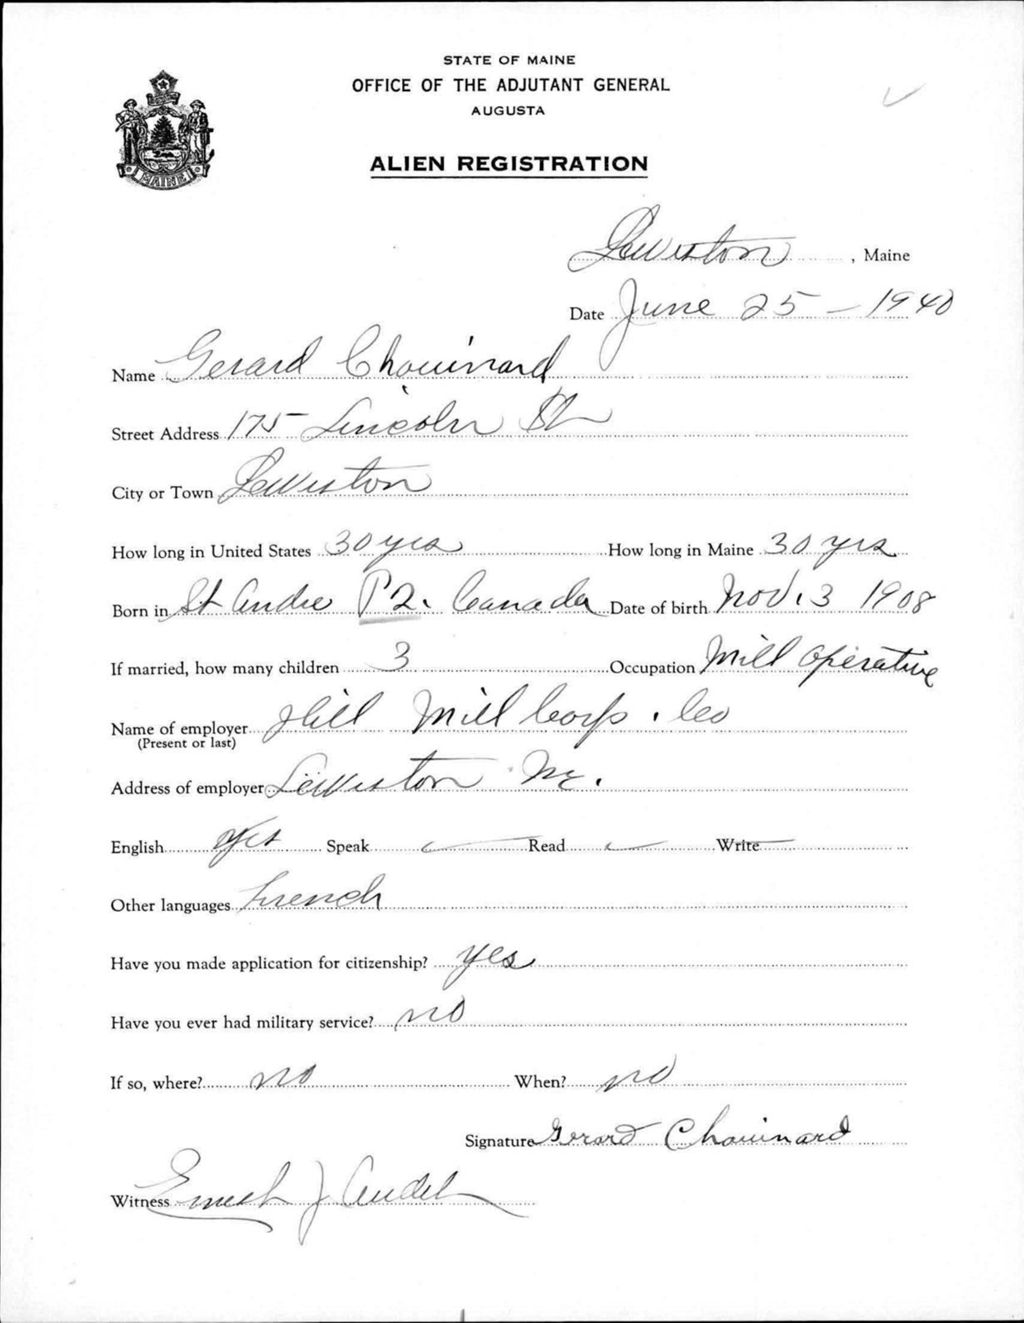 STATE OF MAINE
OFFICE OF THE ADJUTANT GENERAL
AUGUSTA
ALIEN REGISTRATION
MAINE
Lewiston, Maine
Date June 25 - 1940
Name Gerard Chouinard
Street Address 175 Lincoln St
City or Town Lewiston
How long in United States 30 yrs How long in Maine 30 yrs
Born in St Andre P2. Canada Date of birth Nov. 3 1908
If married, how many children 3 Occupation Mill Operative
Name of employer Hill Mill Corp. Co
(Present or last)
Address of employer Lewiston Me.
English yes Speak ✓ Read ✓ Write
Other languages French
Have you made application for citizenship? yes
Have you ever had military service? no
If so, where? no When? no
Signature Gerard Chouinard
Witness Ernest J